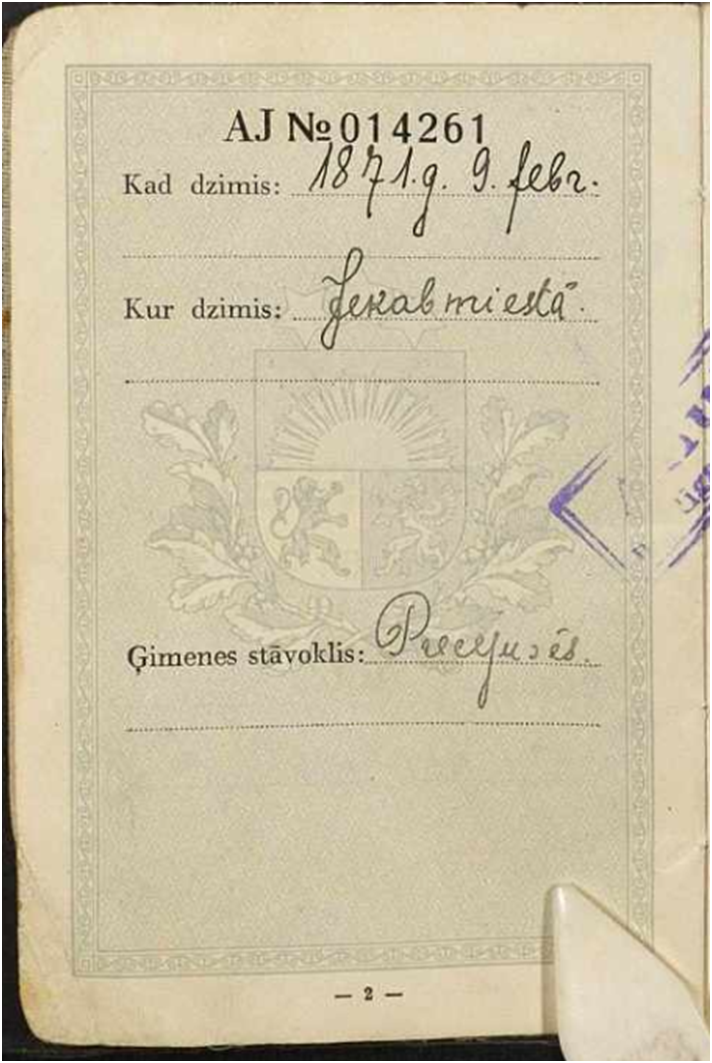 AJ № 014261
Kad dzimis: 1871.g. 9. febr.
Kur dzimis: Jekabmiestā.
Ģimenes stāvoklis: Precejusēs.
— 2 —